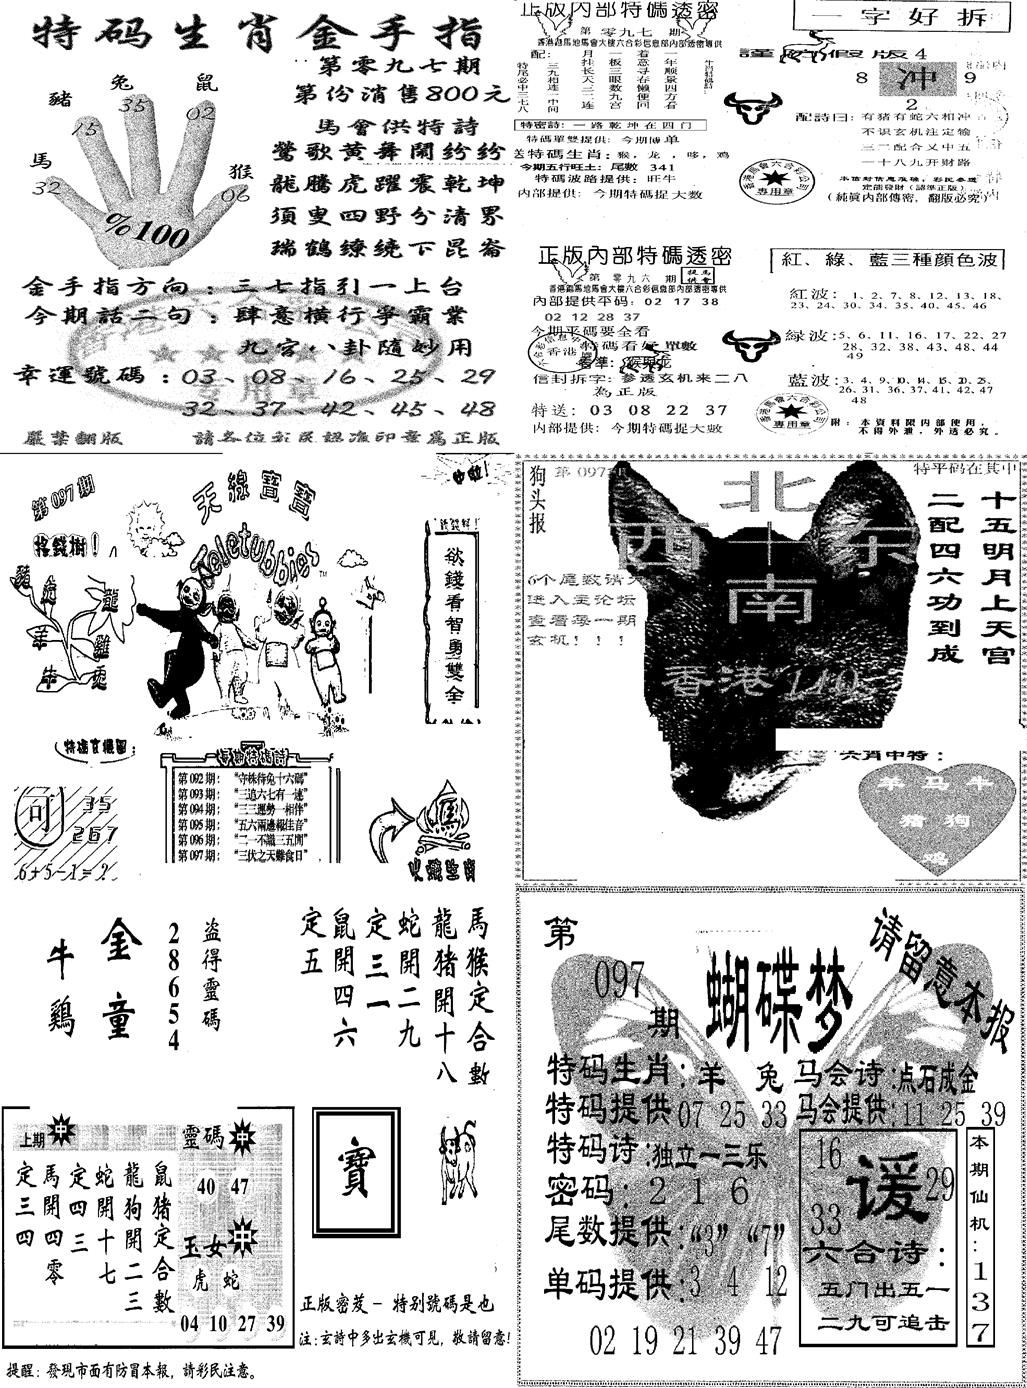 特码生肖金手指
第零九七期
第份消售800元
馬會供特詩
鶯歌黄舞鬧紛紛
龍騰虎躍震乾坤
須叟四野分清界
瑞鶴繚繞下昆崙
豬
兔
鼠
馬
猴
15
35
02
32
06
%100
金手指方向：三七指引一上台
今期話二句：肆意横行爭霸業
九宫八卦隨妙用
幸運號碼：03、08、16、25、29
32、37、42、45、48
嚴禁翻版
請各位彩民認准印章為正版
正版内部特碼透密
第零九七期
香港跑馬地馬會大樓六合彩信息部内部透密專供
配：
特尾必中三七八
三九相连一中间
月挂长天三二连
一板三眼数九宫
着意寻春懒便回
一年顺景四方看
特密詩：一路乾坤在四门
特碼單雙提供：今期博单
送特碼生肖：猴，龙，哆，鸡
今期五行旺土：尾數 341
特碼波路提供：旺牛
内部提供：今期特碼捉大数
一字好拆
謹防假版4
8
冲
9
2
配詩曰：有猪有蛇六相冲
不识玄机注定输
三二配合又中五
一十八九开财路
香港馬會六合彩
專用章
定能發財（認準正版）
（純眞内部傳密，翻版必究）
正版内部特碼透密
第零九六期
香港跑馬地馬會大樓六合彩信息部内部透密專供
内部提供平码：02 17 38
02 12 28 37
今期平碼要全看
特碼看好單數
香港
信封拆字：参透玄机来二八
為正版
特送：03 08 22 37
内部提供：今期特碼捉大數
紅、綠、藍三種顔色波
紅波：1、2、7、8、12、13、18、
23、24、30、34、35、40、45、46
綠波：5、6、11、16、17、22、27
28、32、38、43、48、44
49
藍波：3、4、9、10、14、15、20、25、
26、31、36、37、41、42、47
48
專用章
附：本資料限内部使用，
不得外泄，外透必究。
第097期
天線寶寶
Teletubbies
摇錢樹！
豬
龍
羊
雞
牛
兎
欲錢看智勇雙全
特碼玄機圖
可
35
267
6+5-1=?
每期特碼詩
第092期："守株待兔十六碼"
第093期："三追六七有一連"
第094期："三三運勢一相伴"
第095期："五六兩邊報佳音"
第096期："二一不識三五閒"
第097期："三伏之天難食日"
狗头报
第097期
特平码在其中
北
西十东
南
香港
十五明月上天宫
二配四六功到成
6个尾数请大
进入主论坛
查看每一期
玄机！！！
六肖中特：
羊 马 牛
猪 狗
鸡
牛鷄
金童
28654
盗得靈碼
馬猴定合數
龍猪開十八
蛇開二九
定三一
鼠開四六
定五
上期
中
靈碼
中
40 47
鼠猪定合數
龍狗開二三
蛇開十七
定四三
馬開四零
定三四
玉女
中
虎 蛇
04 10 27 39
寶
正版密茇－特别號碼是也
注：玄詩中多出玄機可見，敬請留意！
提醒：發現市面有防冒本報，請彩民注意。
第097期
蝴碟梦
请留意本报
特码生肖：羊 兔
马会诗：点石成金
特码提供：07 25 33
马会提供：11 25 39
特码诗：独立一三乐
密码：2 1 6
尾数提供："3" "7"
单码提供：3 4 12
02 19 21 39 47
16
29
33
谖
六合诗：
五门出五一
二九可追击
本期仙机：137